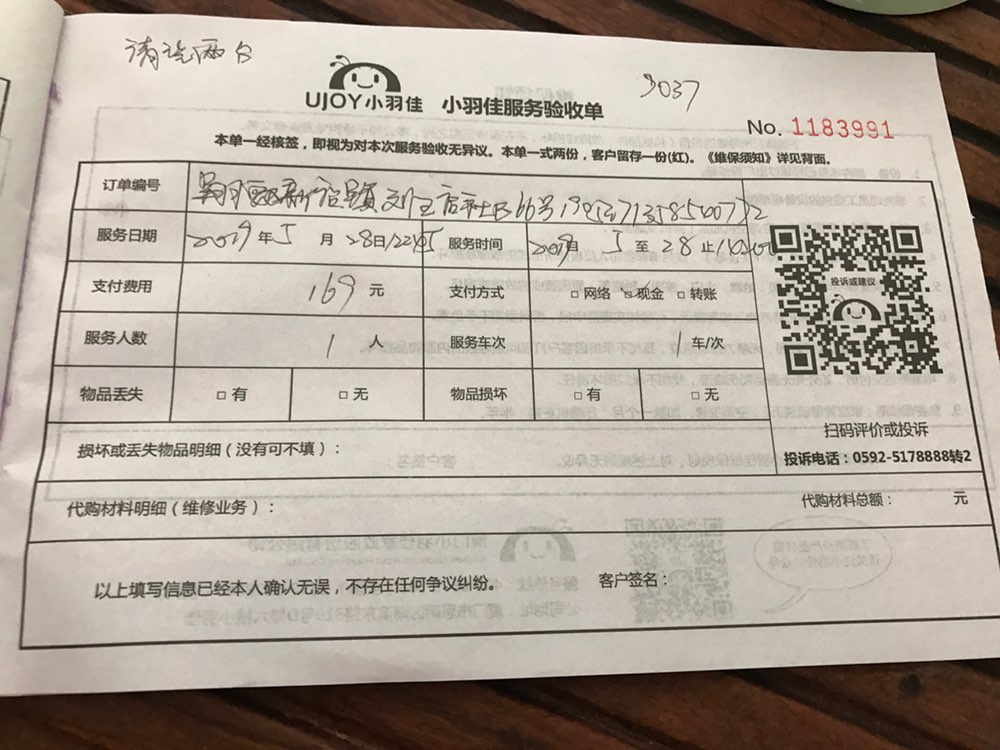 请洗两台
9037
UJOY小羽佳 小羽佳服务验收单
No. 1183991
本单一经核签，即视为对本次服务验收无异议。本单一式两份，客户留存一份(红)。《维保须知》详见背面。
订单编号
服务日期 2019年5月28日 服务时间 至 28止
支付费用 169 元 支付方式 □网络 □现金 □转账
服务人数 1 人 服务车次 1 车/次
物品丢失 □有 □无 物品损坏 □有 □无
投诉或建议
扫码评价或投诉
投诉电话：0592-5178888转2
损坏或丢失物品明细（没有可不填）：
代购材料明细（维修业务）： 代购材料总额： 元
以上填写信息已经本人确认无误，不存在任何争议纠纷。 客户签名：